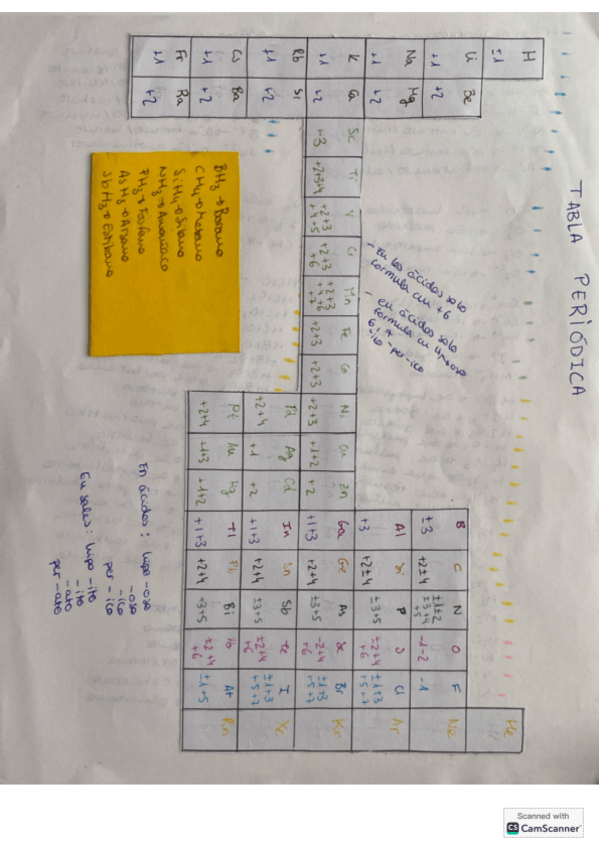 TABLA PERIÓDICA
H
±1
He
Li
+1
Be
+2
B
±3
C
+2±4
N
±1±2
±3+4
+5
O
-1-2
F
-1
Ne
Na
+1
Mg
+2
Al
+3
Si
+2±4
P
±3+5
S
±2+4
+6
Cl
±1+3
+5+7
Ar
K
+1
Ca
+2
Sc
+3
Ti
+2+3+4
V
+2+3
+4+5
Cr
+2+3
+6
Mn
+2+3
+4+6
+7
Fe
+2+3
Co
+2+3
Ni
+2+3
Cu
+1+2
Zn
+2
Ga
+1+3
Ge
+2+4
As
±3+5
Se
-2+4
+6
Br
±1+3
+5+7
Kr
Rb
+1
Sr
+2
Pd
+2+4
Ag
+1
Cd
+2
In
+1+3
Sn
+2+4
Sb
±3+5
Te
±2+4
+6
I
±1+3
+5+7
Xe
Cs
+1
Ba
+2
Pt
+2+4
Au
+1+3
Hg
+1+2
Tl
+1+3
Pb
+2+4
Bi
+3+5
Po
±2+4
+6
At
±1+5
Rn
Fr
+1
Ra
+2
- En los ácidos solo
formula con +6
- en ácidos solo
formula con
6 y 7
-ico -per-ico
BH3 → Borano
CH4 → Metano
SiH4 → Silano
NH3 → Amoníaco
PH3 → Fosfano
AsH3 → Arsano
SbH3 → Estibano
En ácidos: hipo -oso
-oso
-ico
per -ico
En sales: hipo -ito
-ito
-ato
per -ato
Scanned with
CS CamScanner